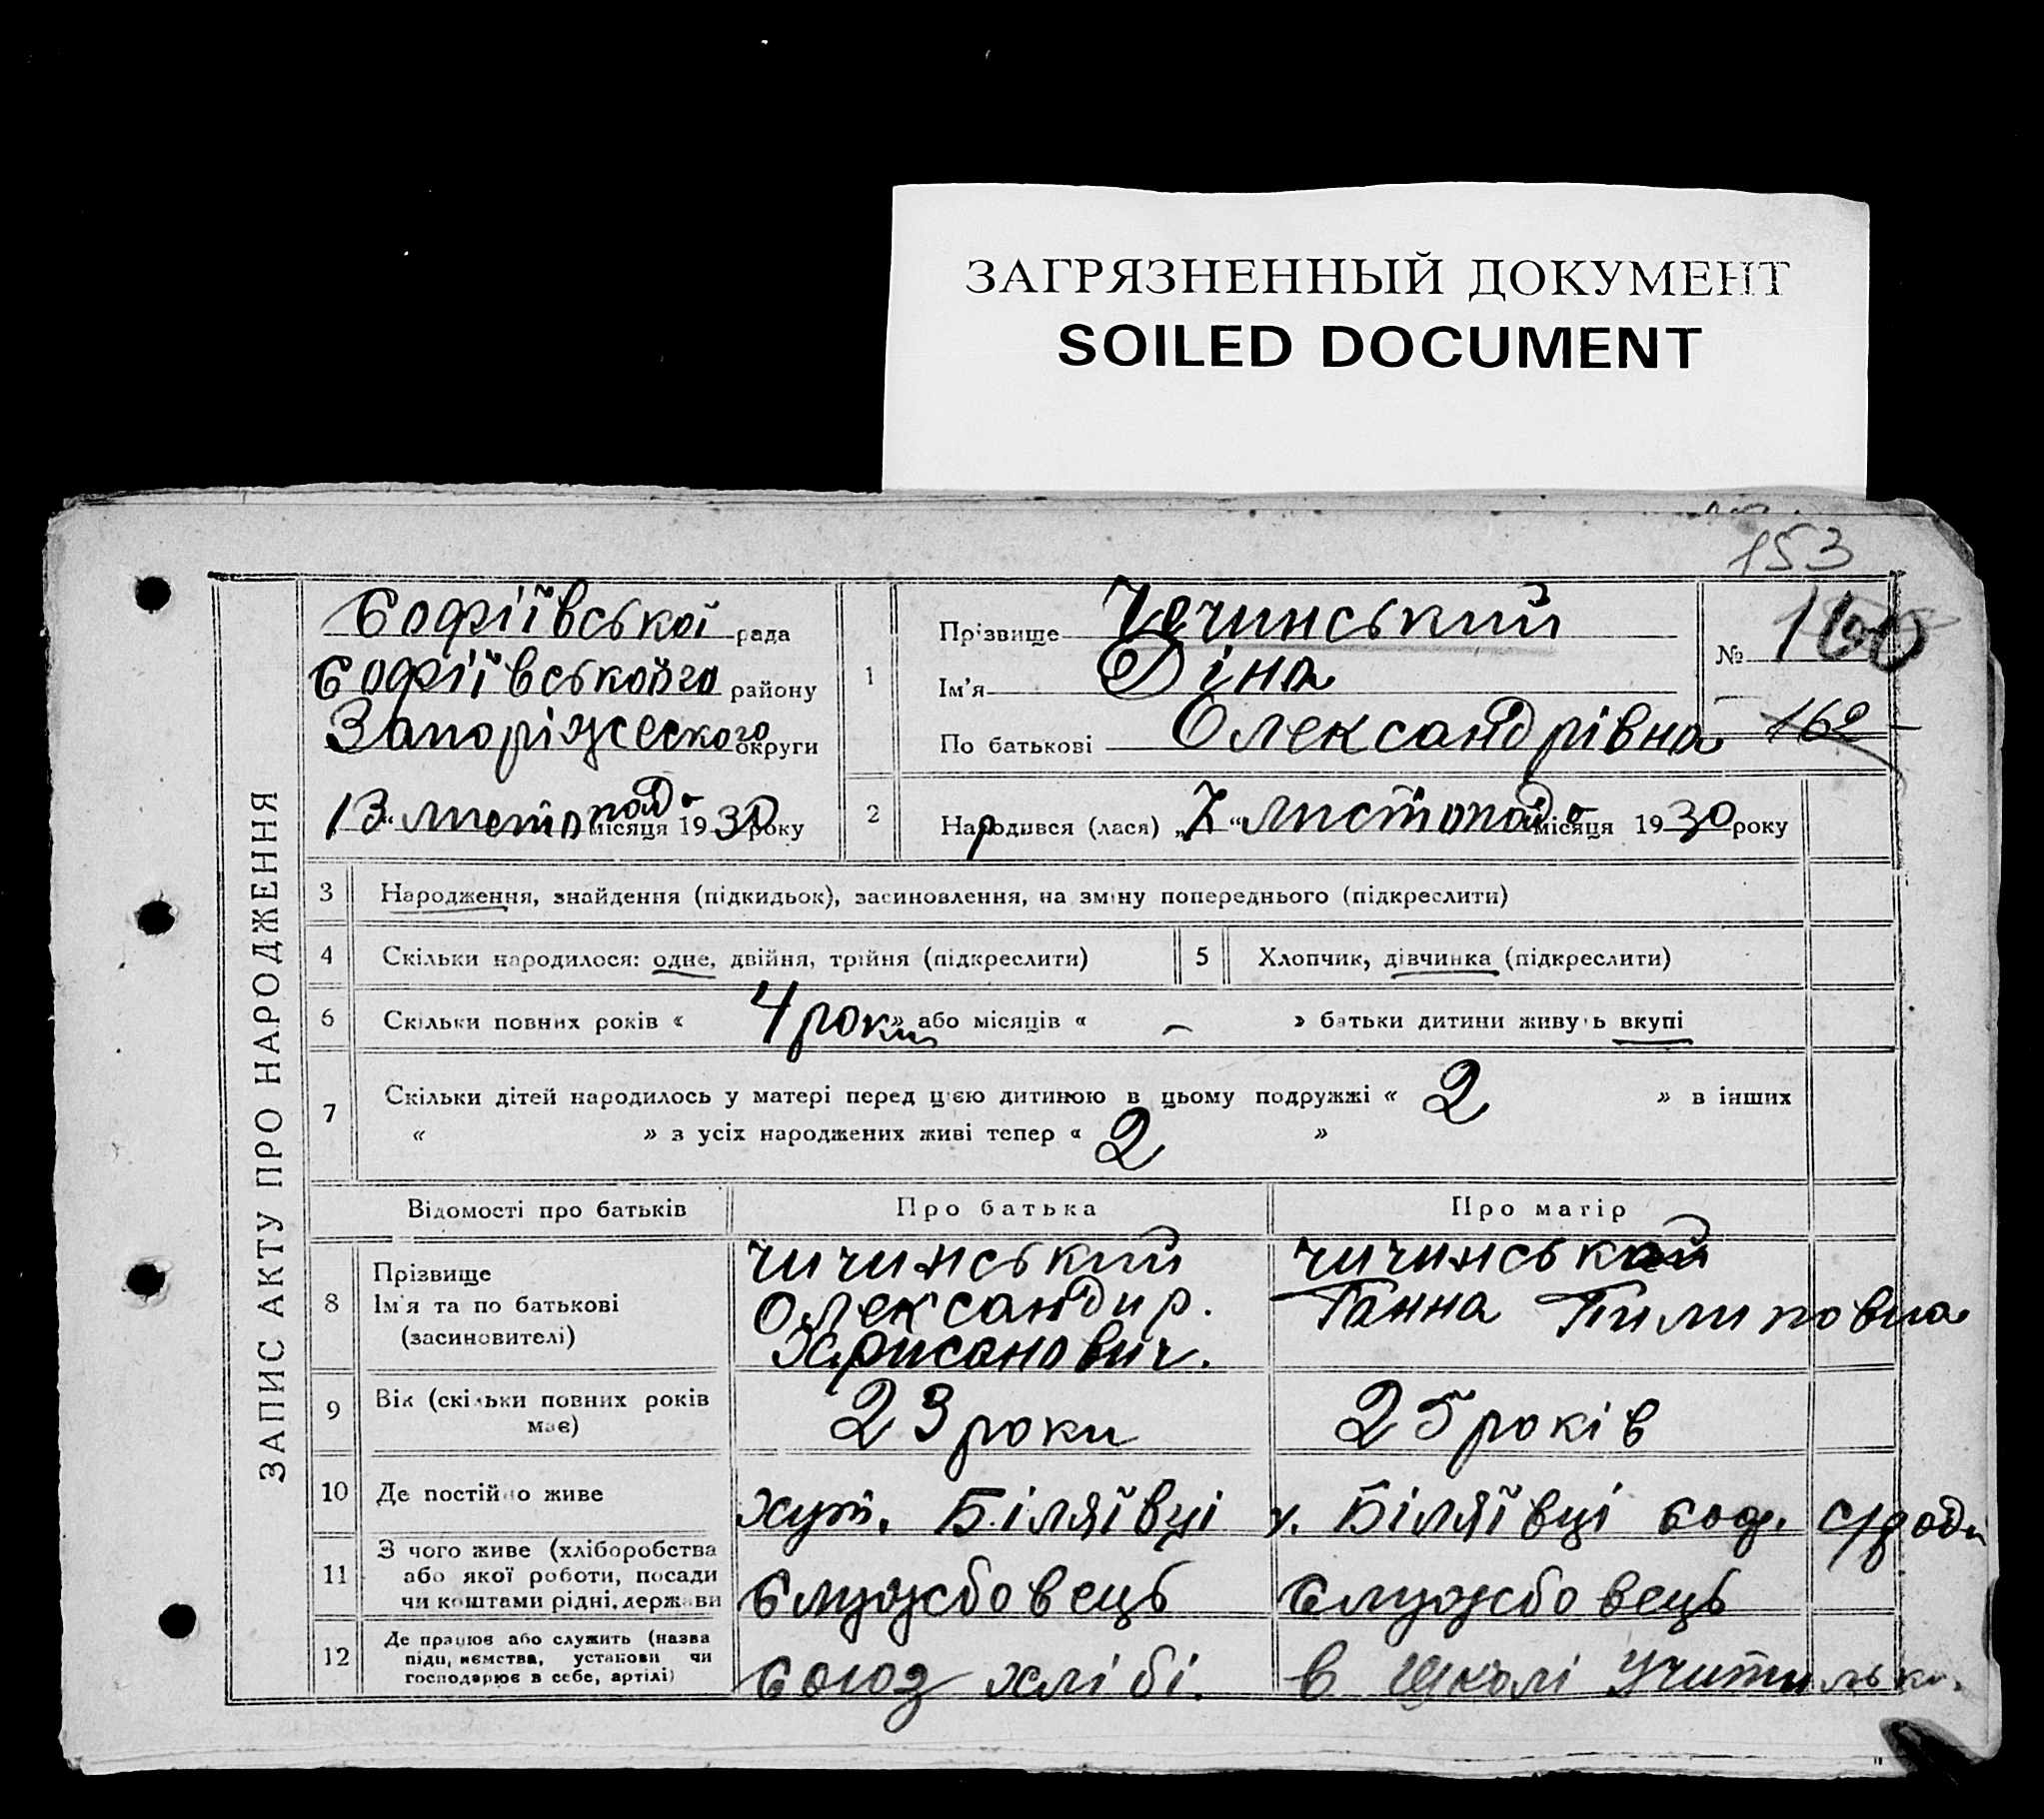 ЗАГРЯЗНЕННЫЙ ДОКУМЕНТ
SOILED DOCUMENT
153
ЗАПИС АКТУ ПРО НАРОДЖЕННЯ
Софіївської рада
Софіївського району
Запоріжеского округи
13 " листопада місяця 1930 року
1
Прізвище Чечинський
Ім'я Діна
По батькові Олександрівна
№ 160
162
2
Народився (лася) „7 “ листопада місяця 1930 року
3 Народження, знайдення (підкидьок), засиновлення, на зміну попереднього (підкреслити)
4 Скільки народилося: одне, двійня, трійня (підкреслити) 5 Хлопчик, дівчинка (підкреслити)
6 Скільки повних років « 4 роки » або місяців « – » батьки дитини живуть вкупі
7 Скільки дітей народилось у матері перед цією дитиною в цьому подружжі « 2 » в інших
« » з усіх народжених живі тепер « 2 »
Відомості про батьків Про батька Про матір
8 Прізвище
Ім'я та по батькові
(засиновителі)
Чичинський
Олександир.
Харисанович.
Чичинськай
Ганна Пилиповна
9 Вік (скільки повних років
має)
23 роки 25 років
10 Де постійно живе хут. Біляївці х. Біляївці Соф. с/ради
11 З чого живе (хліборобства
або якої роботи, посади
чи коштами рідні, держави
Службовець Службовець
12 Де працює або служить (назва
підприємства, установи чи
господарює в себе, артілі)
Союз хлібі. в Школі Учителька.